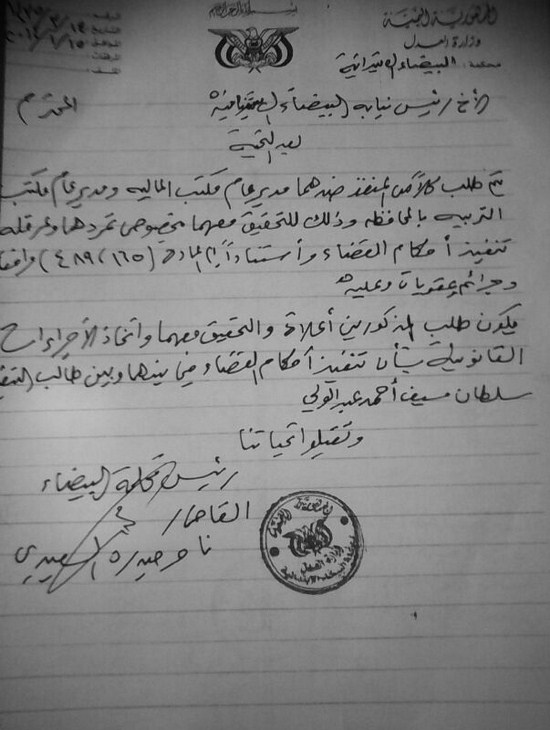 بسم الله الرحمن الرحيم
الجمهورية اليمنية
وزارة العدل
محكمة: البيضاء الابتدائية
الأخ / رئيس نيابة البيضاء الابتدائية المحترم
بعد التحية
تم طلب كلاً من المنفذ ضدهما مدير عام مكتب المالية ومدير عام مكتب
التربية بالمحافظة وذلك للتحقيق معهما بخصوص تمردهما وعرقلة
تنفيذ أحكام القضاء وأستناداً إلى المادة (١٦٥/٤٨٩) مرافعا
وجرائم وعقوبات وعليه
فيكون طلب المذكورين أعلاه والتحقيق معهما واتخاذ الأجراءات
القانونية بشأن تنفيذ أحكام القضاء فيما بينهما وبين طالب التنفيذ
سلطان سيف أحمد عبدالولي
وتقبلوا تحياتنا
رئيس محكمة البيضاء
القاضي /
السعيدي
وزارة العدل